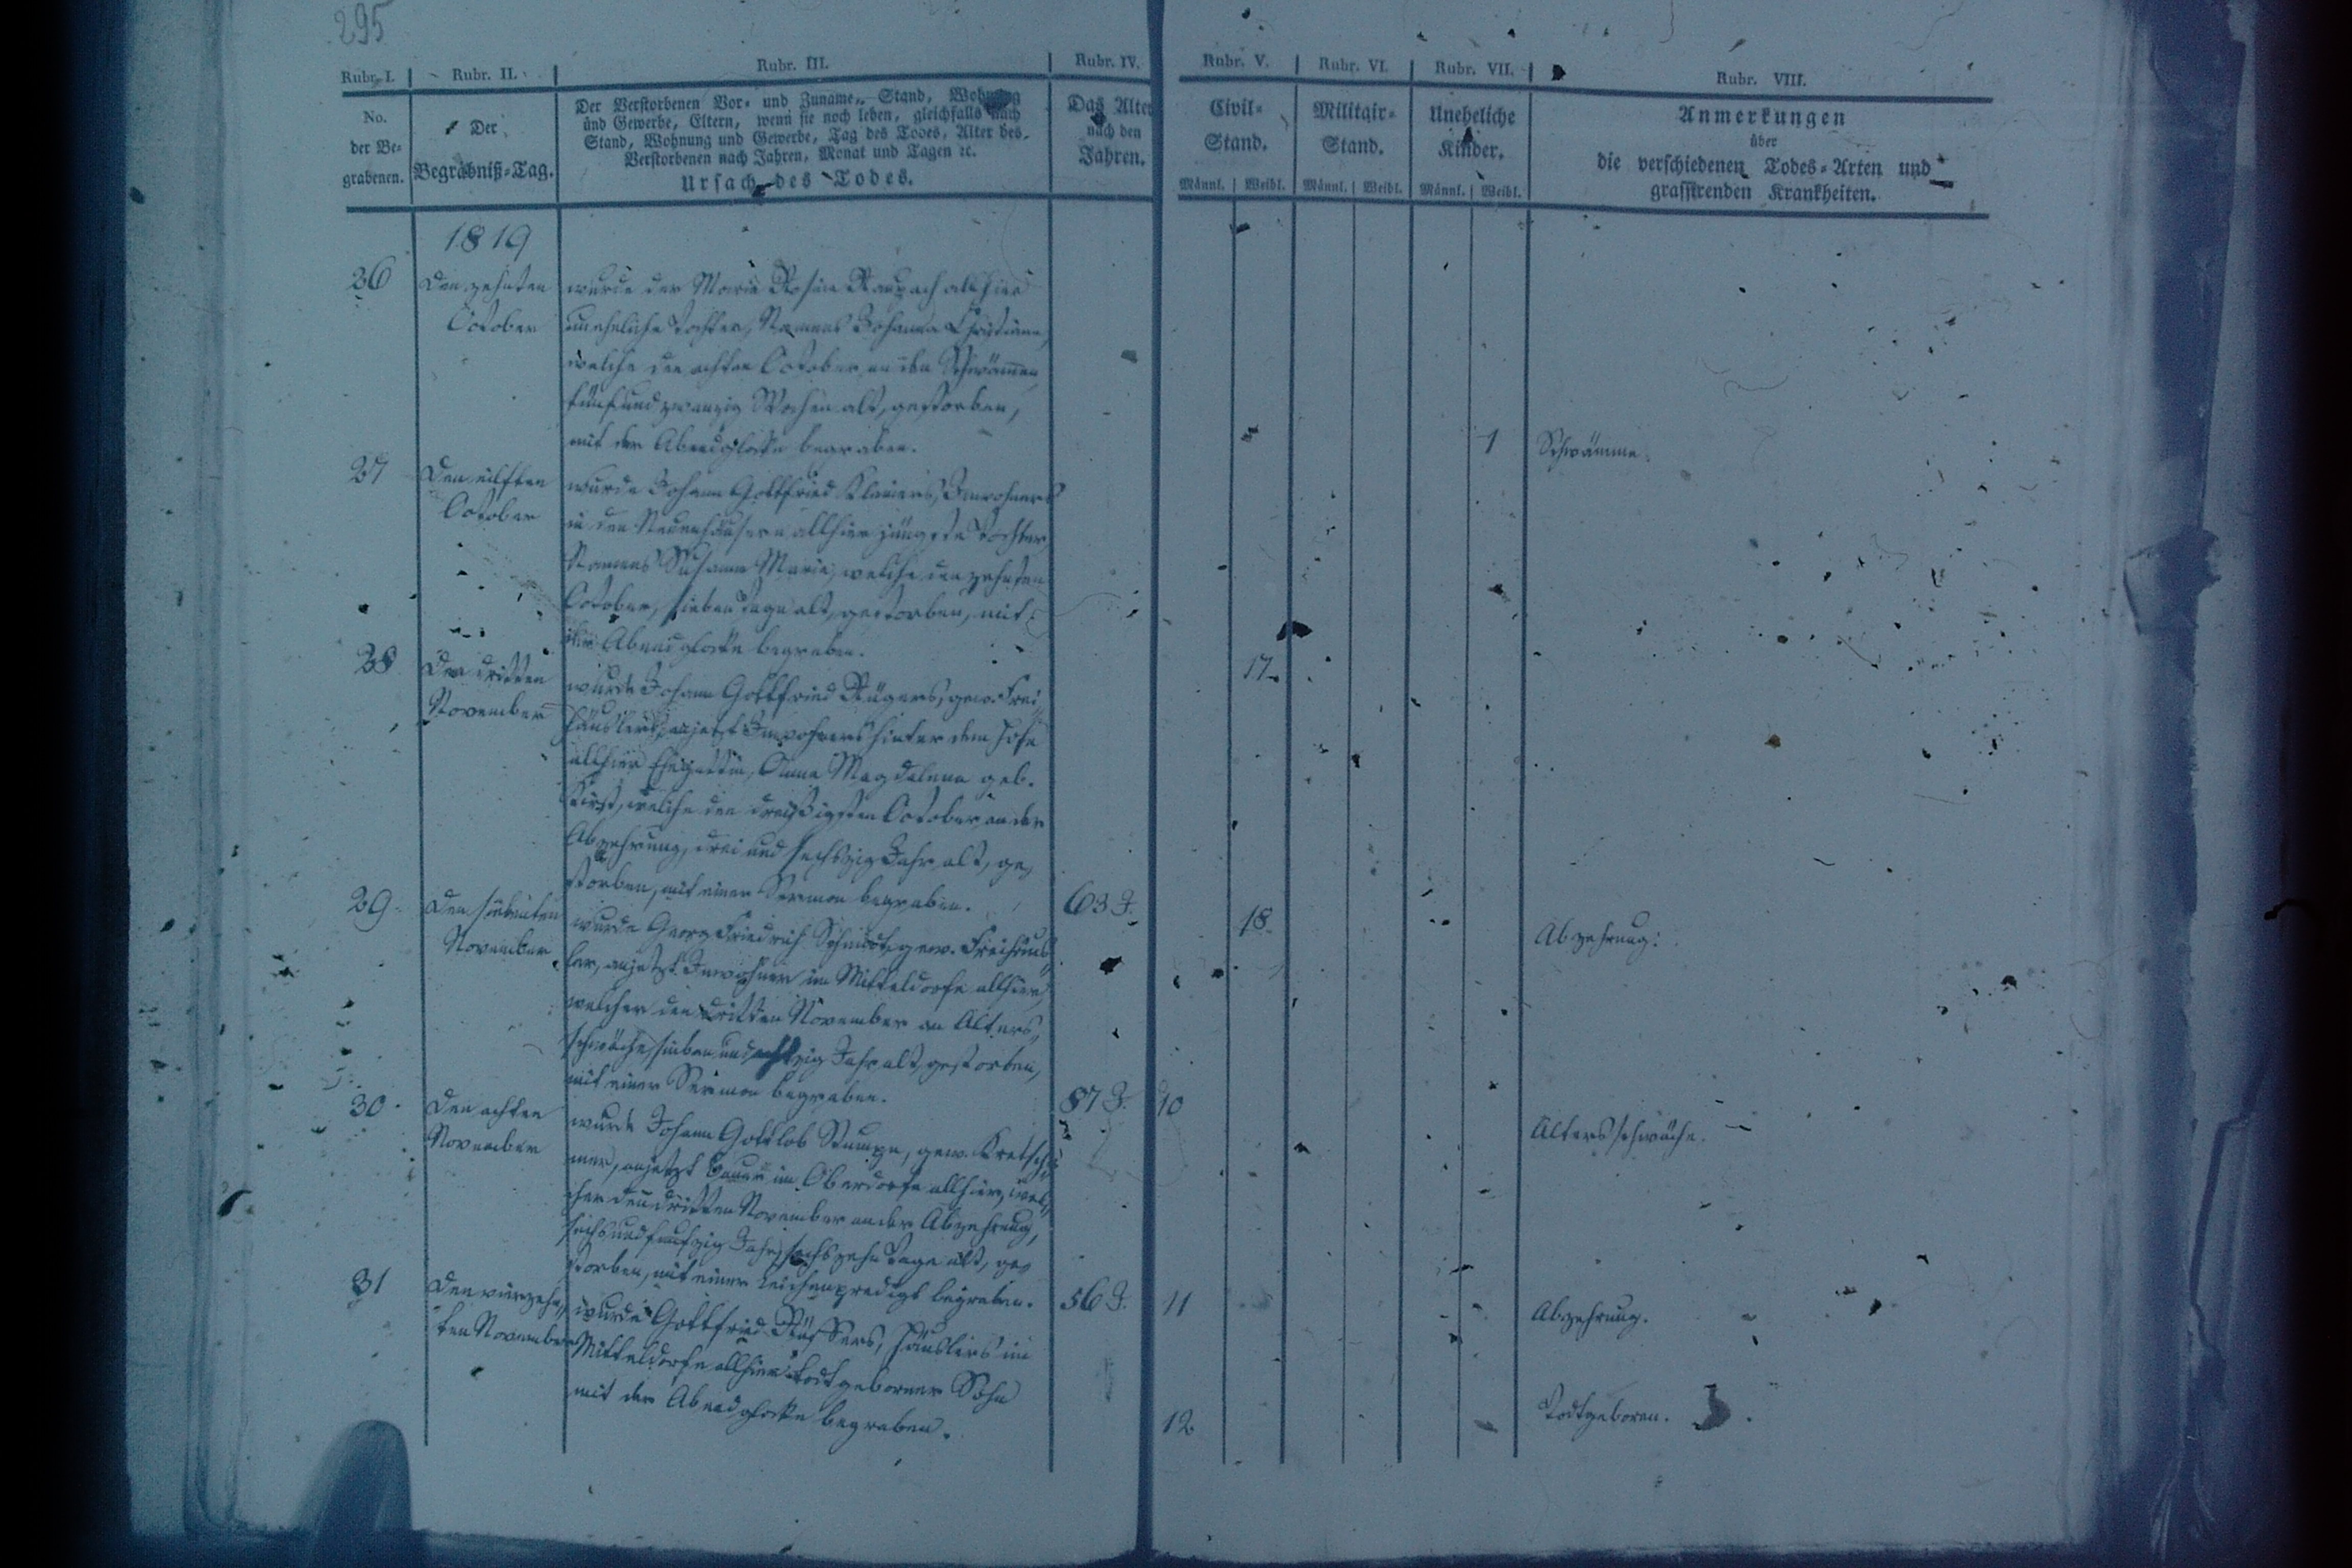 295
Rubr. I. Rubr. II. Rubr. III. Rubr. IV. Rubr. V. Rubr. VI. Rubr. VII. Rubr. VIII.
No.
der Be-
grabenen.
Der
Begräbniß-Tag.
Der Verstorbenen Vor- und Zuname, Stand, Wohnung
und Gewerbe, Eltern, wenn sie noch leben, gleichfalls nach
Stand, Wohnung und Gewerbe, Tag des Todes, Alter des
Verstorbenen nach Jahren, Monat und Tagen ꝛc.
Ursach des Todes.
Das Alter
nach den
Jahren.
Civil-
Stand.
Männl. Weibl.
Militair-
Stand.
Männl. Weibl.
Uneheliche
Kinder.
Männl. Weibl.
Anmerkungen
über
die verschiedenen Todes-Arten und
grassirenden Krankheiten.
1819
26
Den zehnten
October
wurde der Maria Rosina Raupach allhier
uneheliche Tochter, Namens Johanna Christiane,
welche den achten October an den Schwämmen,
fünfundzwanzig Wochen alt, gestorben,
mit der Abendglocke begraben.
1
Schwämme.
27
Den eilften
October
wurde Johann Gottfried Inwohners
in den Neuenhäusern allhier jüngste Tochter,
Namens Susanna Maria, welche den zehnten
October, sieben Tage alt, gestorben, mit
der Abendglocke begraben.
17
28
Den dritten
November
wurde Johann Gottfried Rügers, gew. Frei
häuslers, anjetzt Inwohners hinter dem Hofe
allhier Ehegattin, Anna Magdalena geb.
welche den dreißigsten October an der
Abzehrung, drei und sechszig Jahr alt, ge
storben, mit einer Sermon begraben.
63 J.
18
Abzehrung.
29
Den siebenten
November
wurde Georg Friedrich Schmidt, gew. Freihäus
ler, anjetzt Inwohner im Mitteldorfe allhier,
welcher den dritten November an Alters
schwäche, sieben und achtzig Jahr alt, gestorben,
mit einer Sermon begraben.
87 J.
10
Altersschwäche.
30
Den achten
November
wurde Johann Gottlob Stumpe, gew. Kretsch
mer, anjetzt Bauer im Oberdorfe allhier, wel
cher den dritten November an der Abzehrung,
sechsundfunfzig Jahr, sechszehn Tage alt, ge
storben, mit einer Leichenpredigt begraben.
56 J.
11
Abzehrung.
31
Den vierzehn
ten November
wurde Gottfried Häuslers im
Mitteldorfe allhier todtgeborner Sohn
mit der Abendglocke begraben.
12
Todtgeboren.